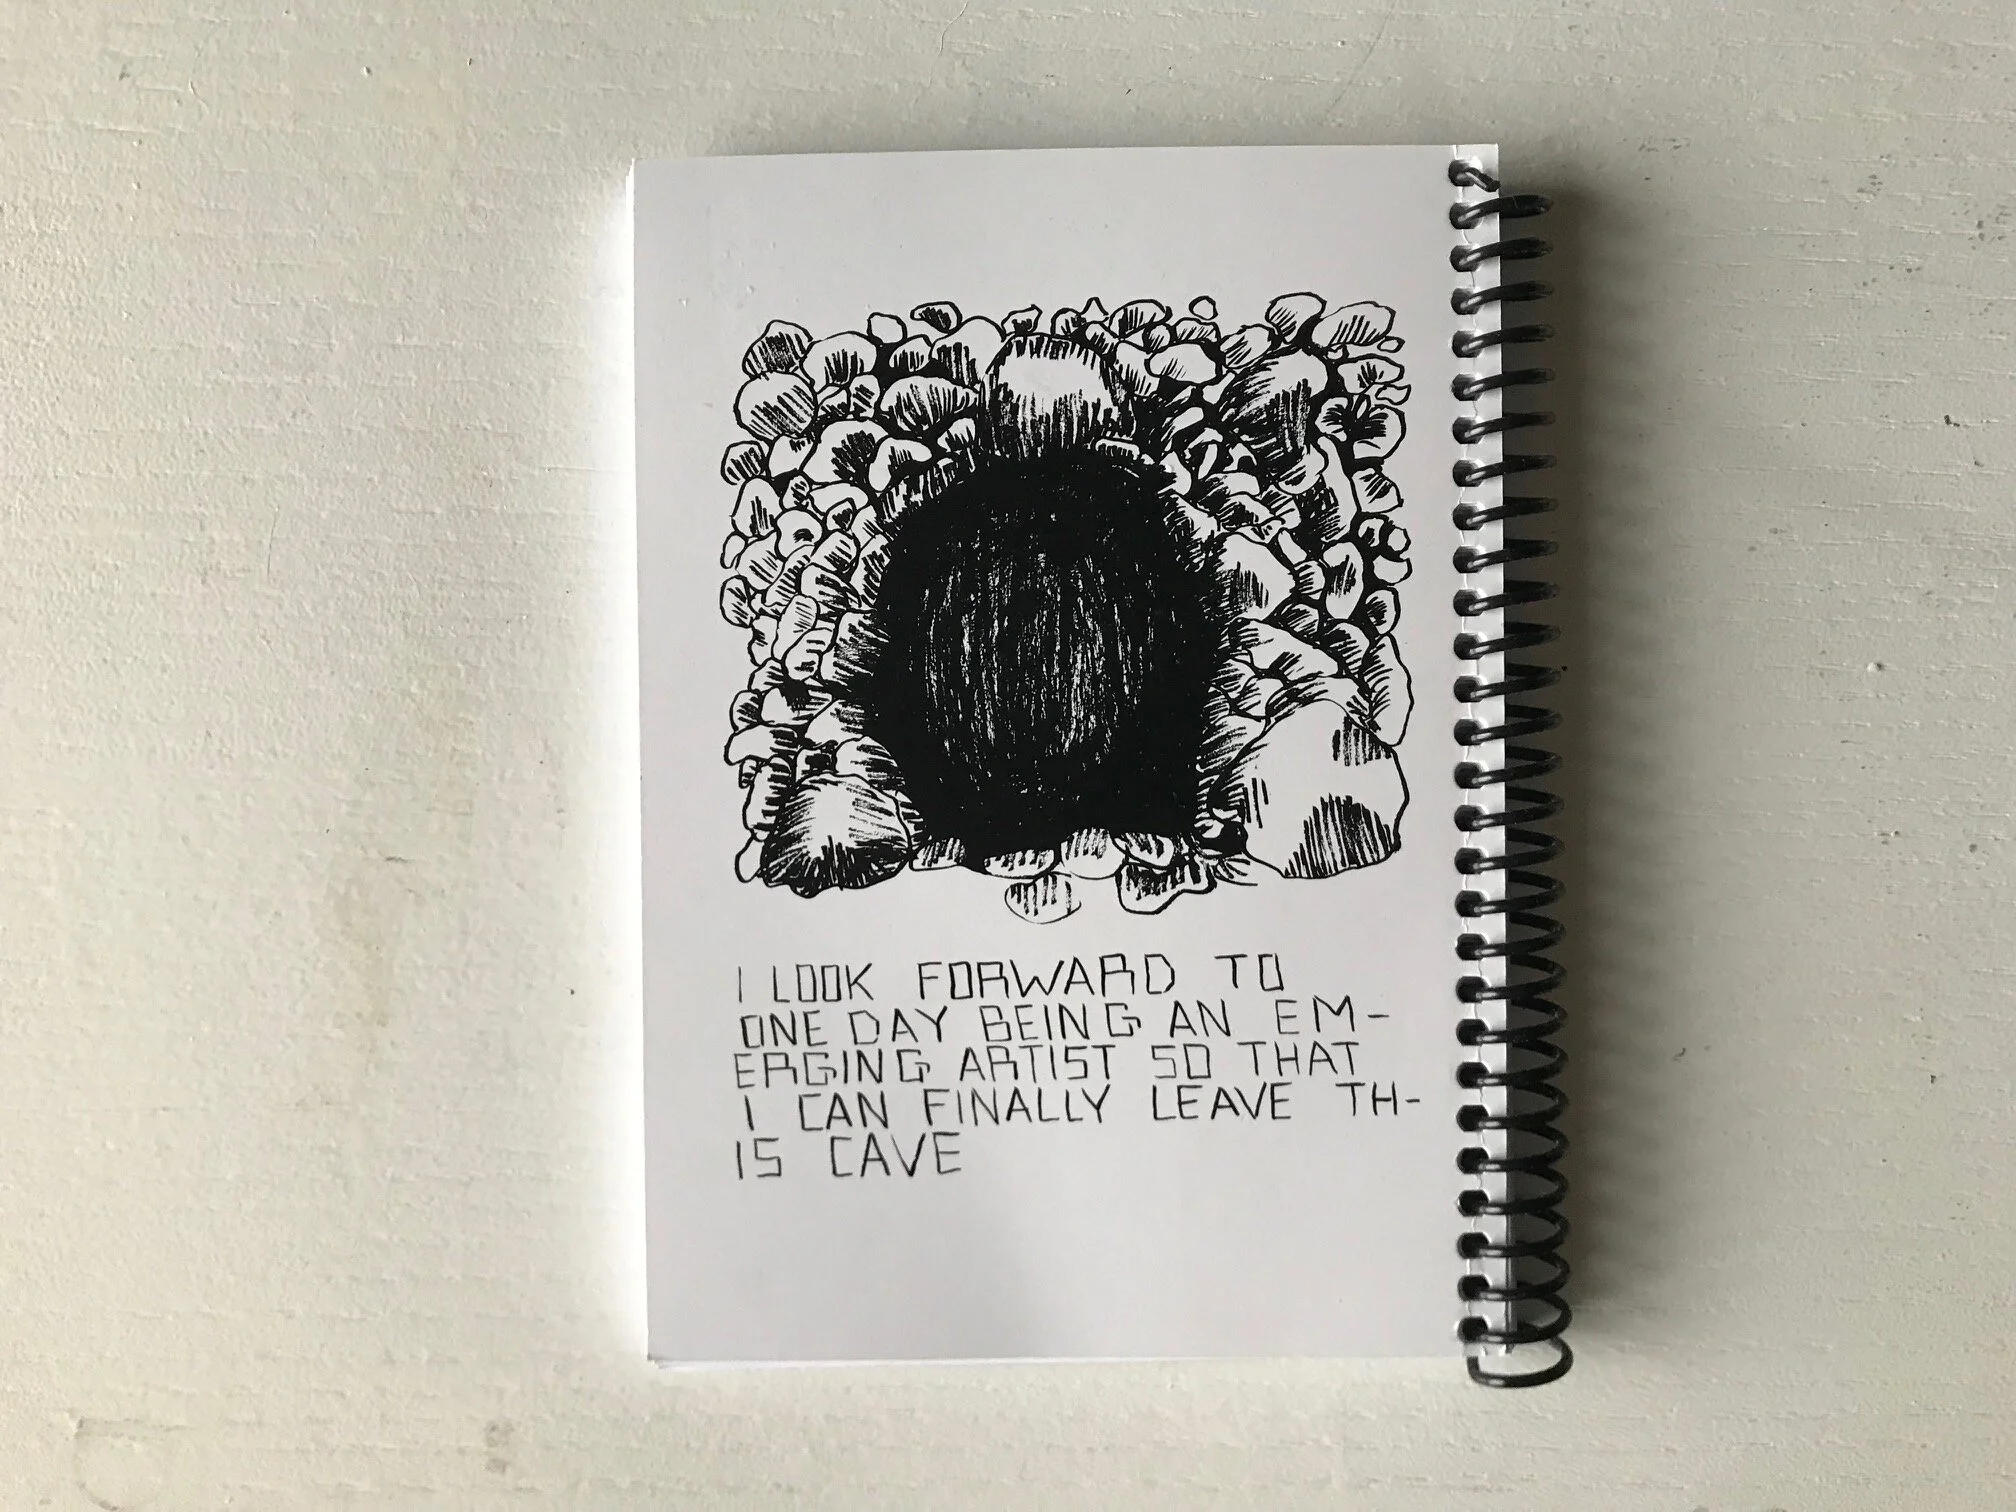 I LOOK FORWARD TO
ONE DAY BEING AN EM-
ERGING ARTIST SO THAT
I CAN FINALLY LEAVE TH-
IS CAVE